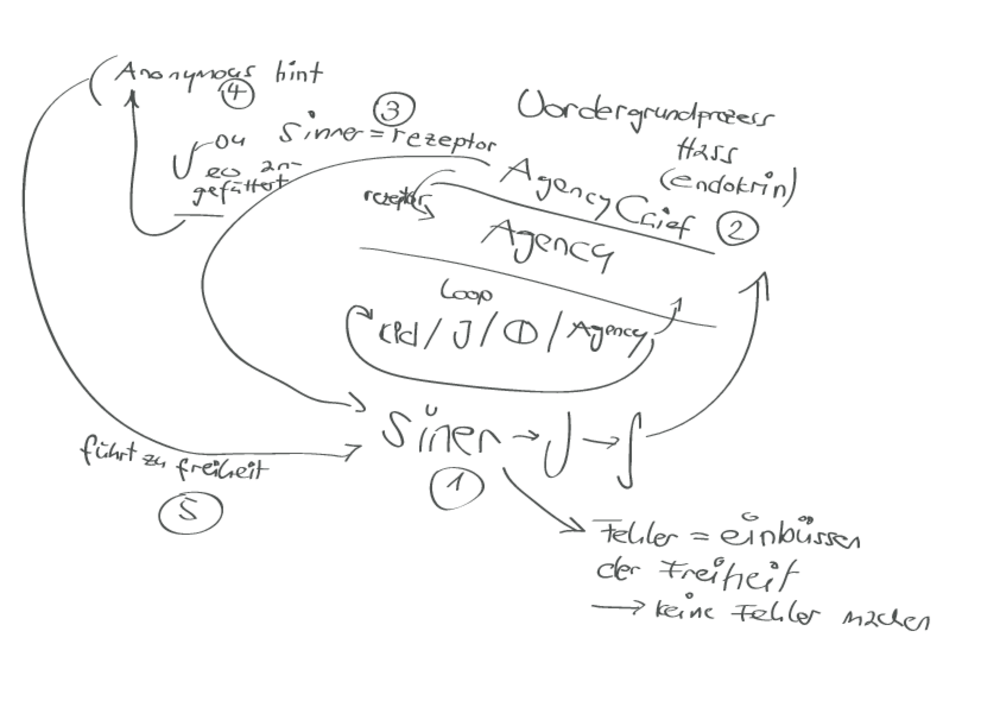 (Anonymous hint
4
3
Sinner = rezeptor
Vordergrundprozess
Hass
(endokrin)
04
an-
gefüttert
rezeptor
Agency Chief 2
Agency
Loop
/ J / / Agency
Siner → J → ∫
1
führt zu freiheit
5
Fehler = einbüssen
der Freiheit
→ keine Fehler machen